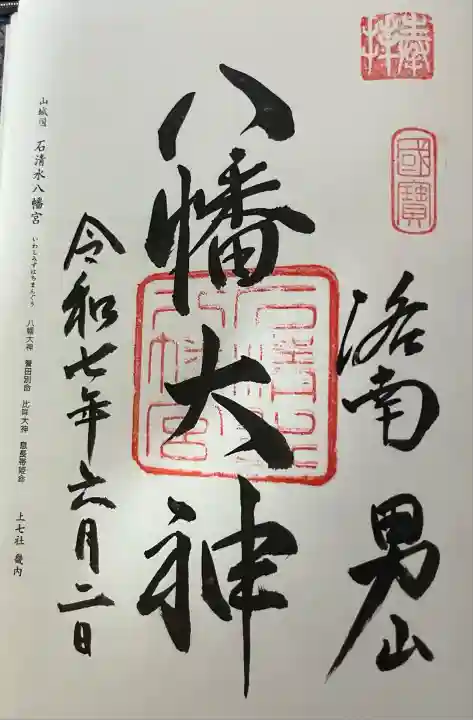 奉拝
國寶
洛南 男山
八幡大神
石清水八幡宮
令和七年六月二日
山城国 石清水八幡宮 いわしみずはちまんぐう 八幡大神 誉田別命 比咩大神 息長帯姫命 上七社 畿内